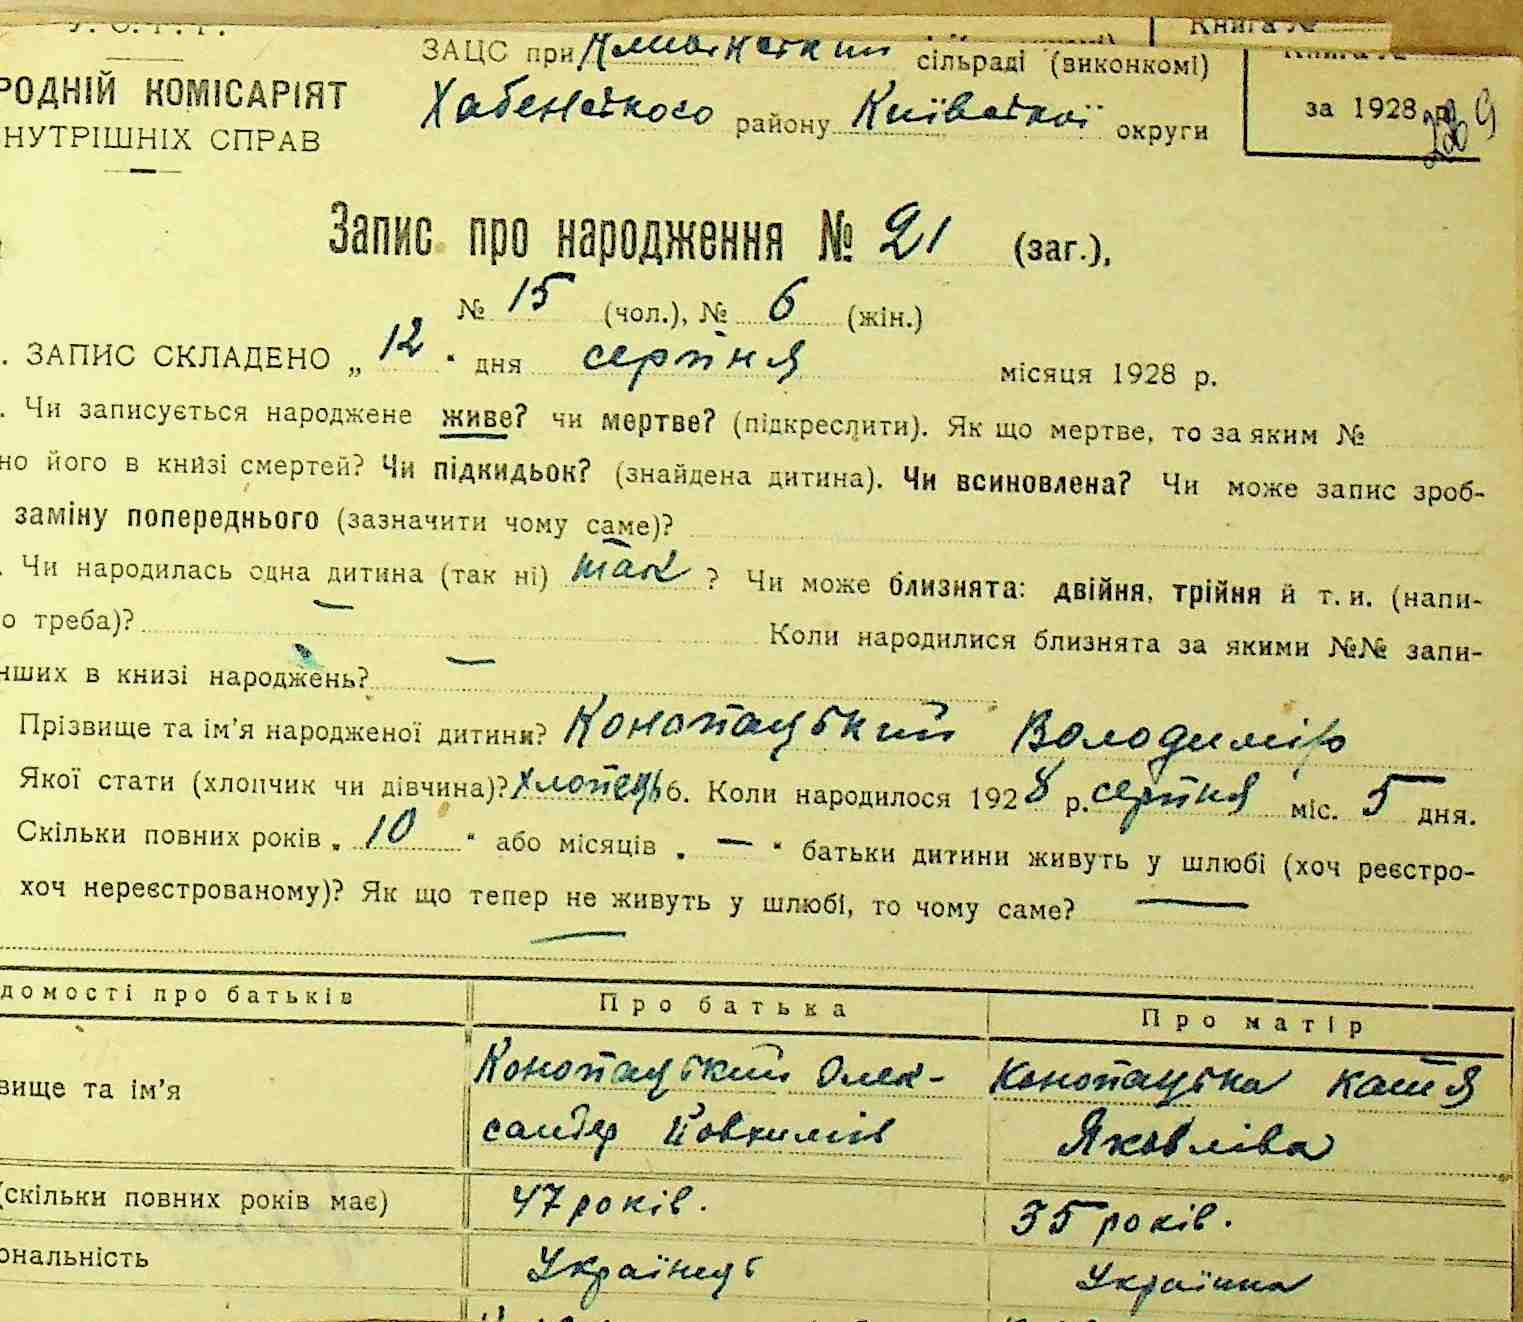 У. С. Р. Р.
ЗАЦС при сільраді (виконкомі)
Книга №
РОДНІЙ КОМІСАРІЯТ
НУТРІШНІХ СПРАВ
Хабенського району Київської округи
за 1928 р.
Запис про народження № 21 (заг.),
№ 15 (чол.), № 6 (жін.)
. ЗАПИС СКЛАДЕНО „ 12 " дня серпня місяця 1928 р.
. Чи записується народжене живе? чи мертве? (підкреслити). Як що мертве, то за яким №
но його в книзі смертей? Чи підкидьок? (знайдена дитина). Чи всиновлена? Чи може запис зроб-
заміну попереднього (зазначити чому саме)?
. Чи народилась одна дитина (так ні) так ? Чи може близнята: двійня, трійня й т. и. (напи-
о треба)? — Коли народилися близнята за якими №№ запи-
нших в книзі народжень? —
Прізвище та ім'я народженої дитини? Конопацький Володимір
Якої стати (хлопчик чи дівчина)? хлопець 6. Коли народилося 1928 р. серпня міс. 5 дня.
Скільки повних років „ 10 " або місяців „ — " батьки дитини живуть у шлюбі (хоч реєстро-
хоч нереєстрованому)? Як що тепер не живуть у шлюбі, то чому саме? —
—
домості про батьків Про батька Про матір
вище та ім'я Конопацький Олек- Конопацька Катя
сандер Йовхимів Яковліва
(скільки повних років має) 47 років. 35 років.
ональність Українець Українка